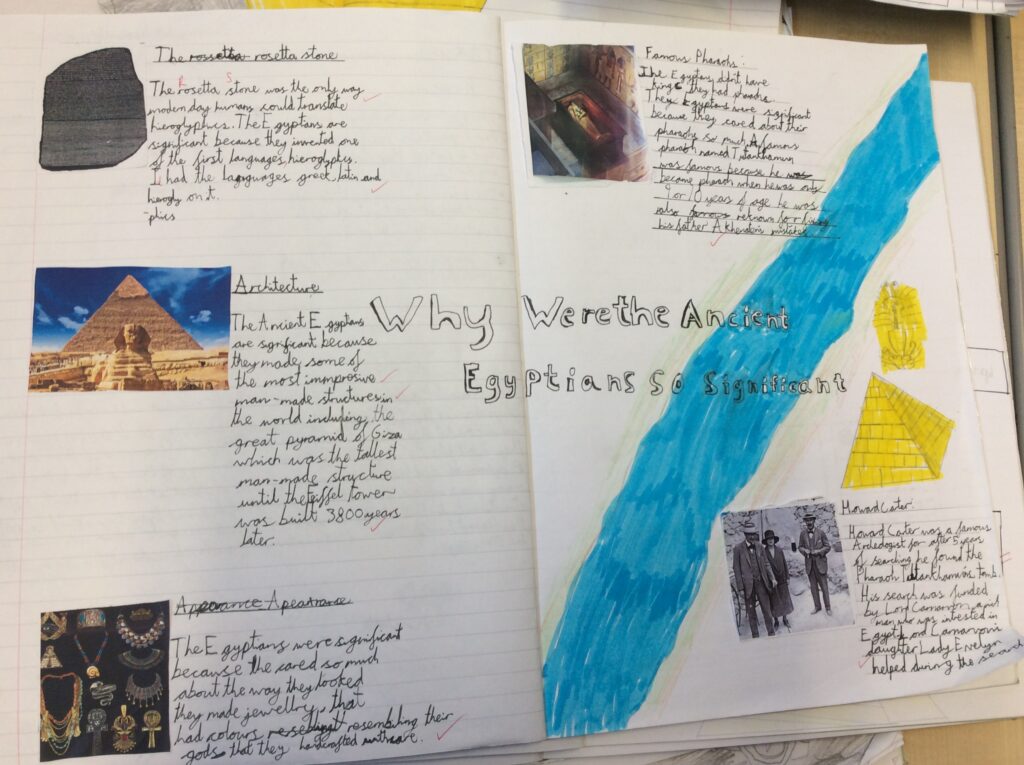 The rossetta rosetta stone
The rosetta stone was the only way
R S
modern day humans could translate
hieroglyphics. The Egyptians are
significant because they invented one
of the first languages, hieroglyphs.
It had the languages greek, latin and
hierogly on it.
-phics
Architecture
The Ancient Egyptans
are significant because
they made some of
the most immpresive
man-made structures in
the world including, the
great pyramid of Giza
which was the tallest
man-made structure
until the Eiffel tower
was built 3800 years
later.
Appearance Apearance
The Egyptans were significant
because the cared so much
about the way they looked
they made jewellry, that
had colours resembling their
gods that they handcrafted with care.
Why Were the Ancient
Egyptians so Significant
Famous Pharaohs:
The Egyptans didn't have
kings they had pharohs.
The Egyptans were significant
because they cared about their
pharaohs so much. A famous
pharaoh named Tutankhamun
was famous because he was
became pharaoh when he was only
9 or 10 years of age he was
also famous reknown for fixing
his father Akhenaten's mistakes.
Howard Cater.
Howard Carter was a famous
Archeologist for after 5 years
of searching he found the
Pharaoh Tutankhamun's tomb.
His search was funded
by Lord Carnarvon, a
man who was intrested in
Egypt Lord Carnarvon's
daughter Lady Evelyn
helped during the search